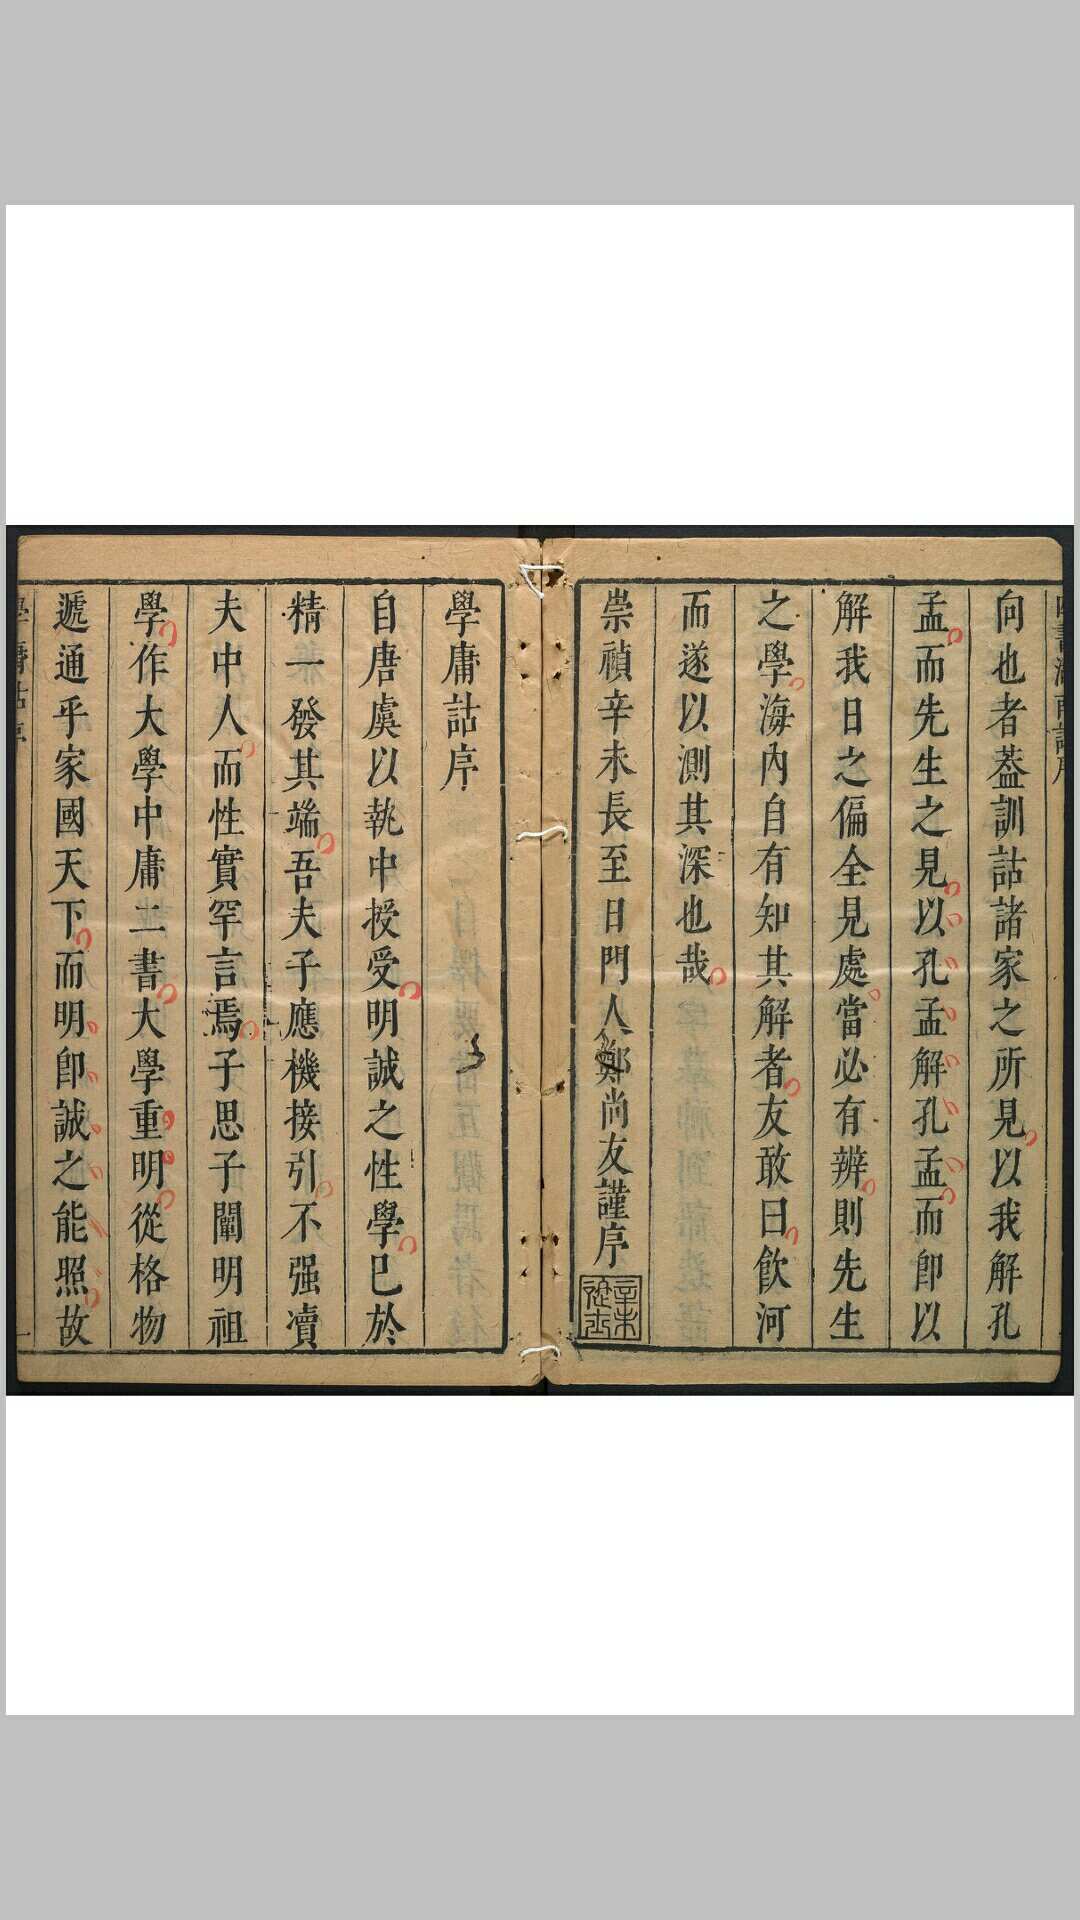 向也者葢訓詁諸家之所見以我解孔
孟而先生之見以孔孟解孔孟而卽以
解我日之偏全見處當必有辨則先生
之學海內自有知其解者友敢曰飲河
而遂以測其深也哉
崇禎辛未長至日門人鄭尚友謹序
辛未
進士
學庸詁序
自唐虞以執中授受明誠之性學已於
精一發其端吾夫子應機接引不强瀆
夫中人而性實罕言焉子思子闡明祖
學作大學中庸二書大學重明從格物
遞通乎家國天下而明卽誠之能照故
學庸詁序
一